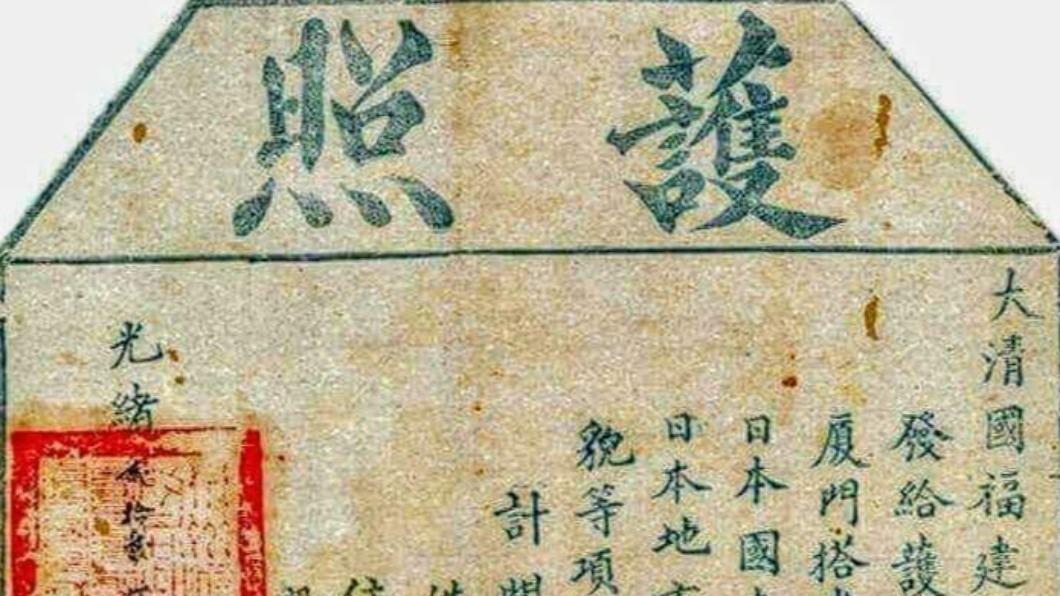 護照
大清國福建
發給護
厦門搭
日本國
日本地
貌等項
計開
光緒